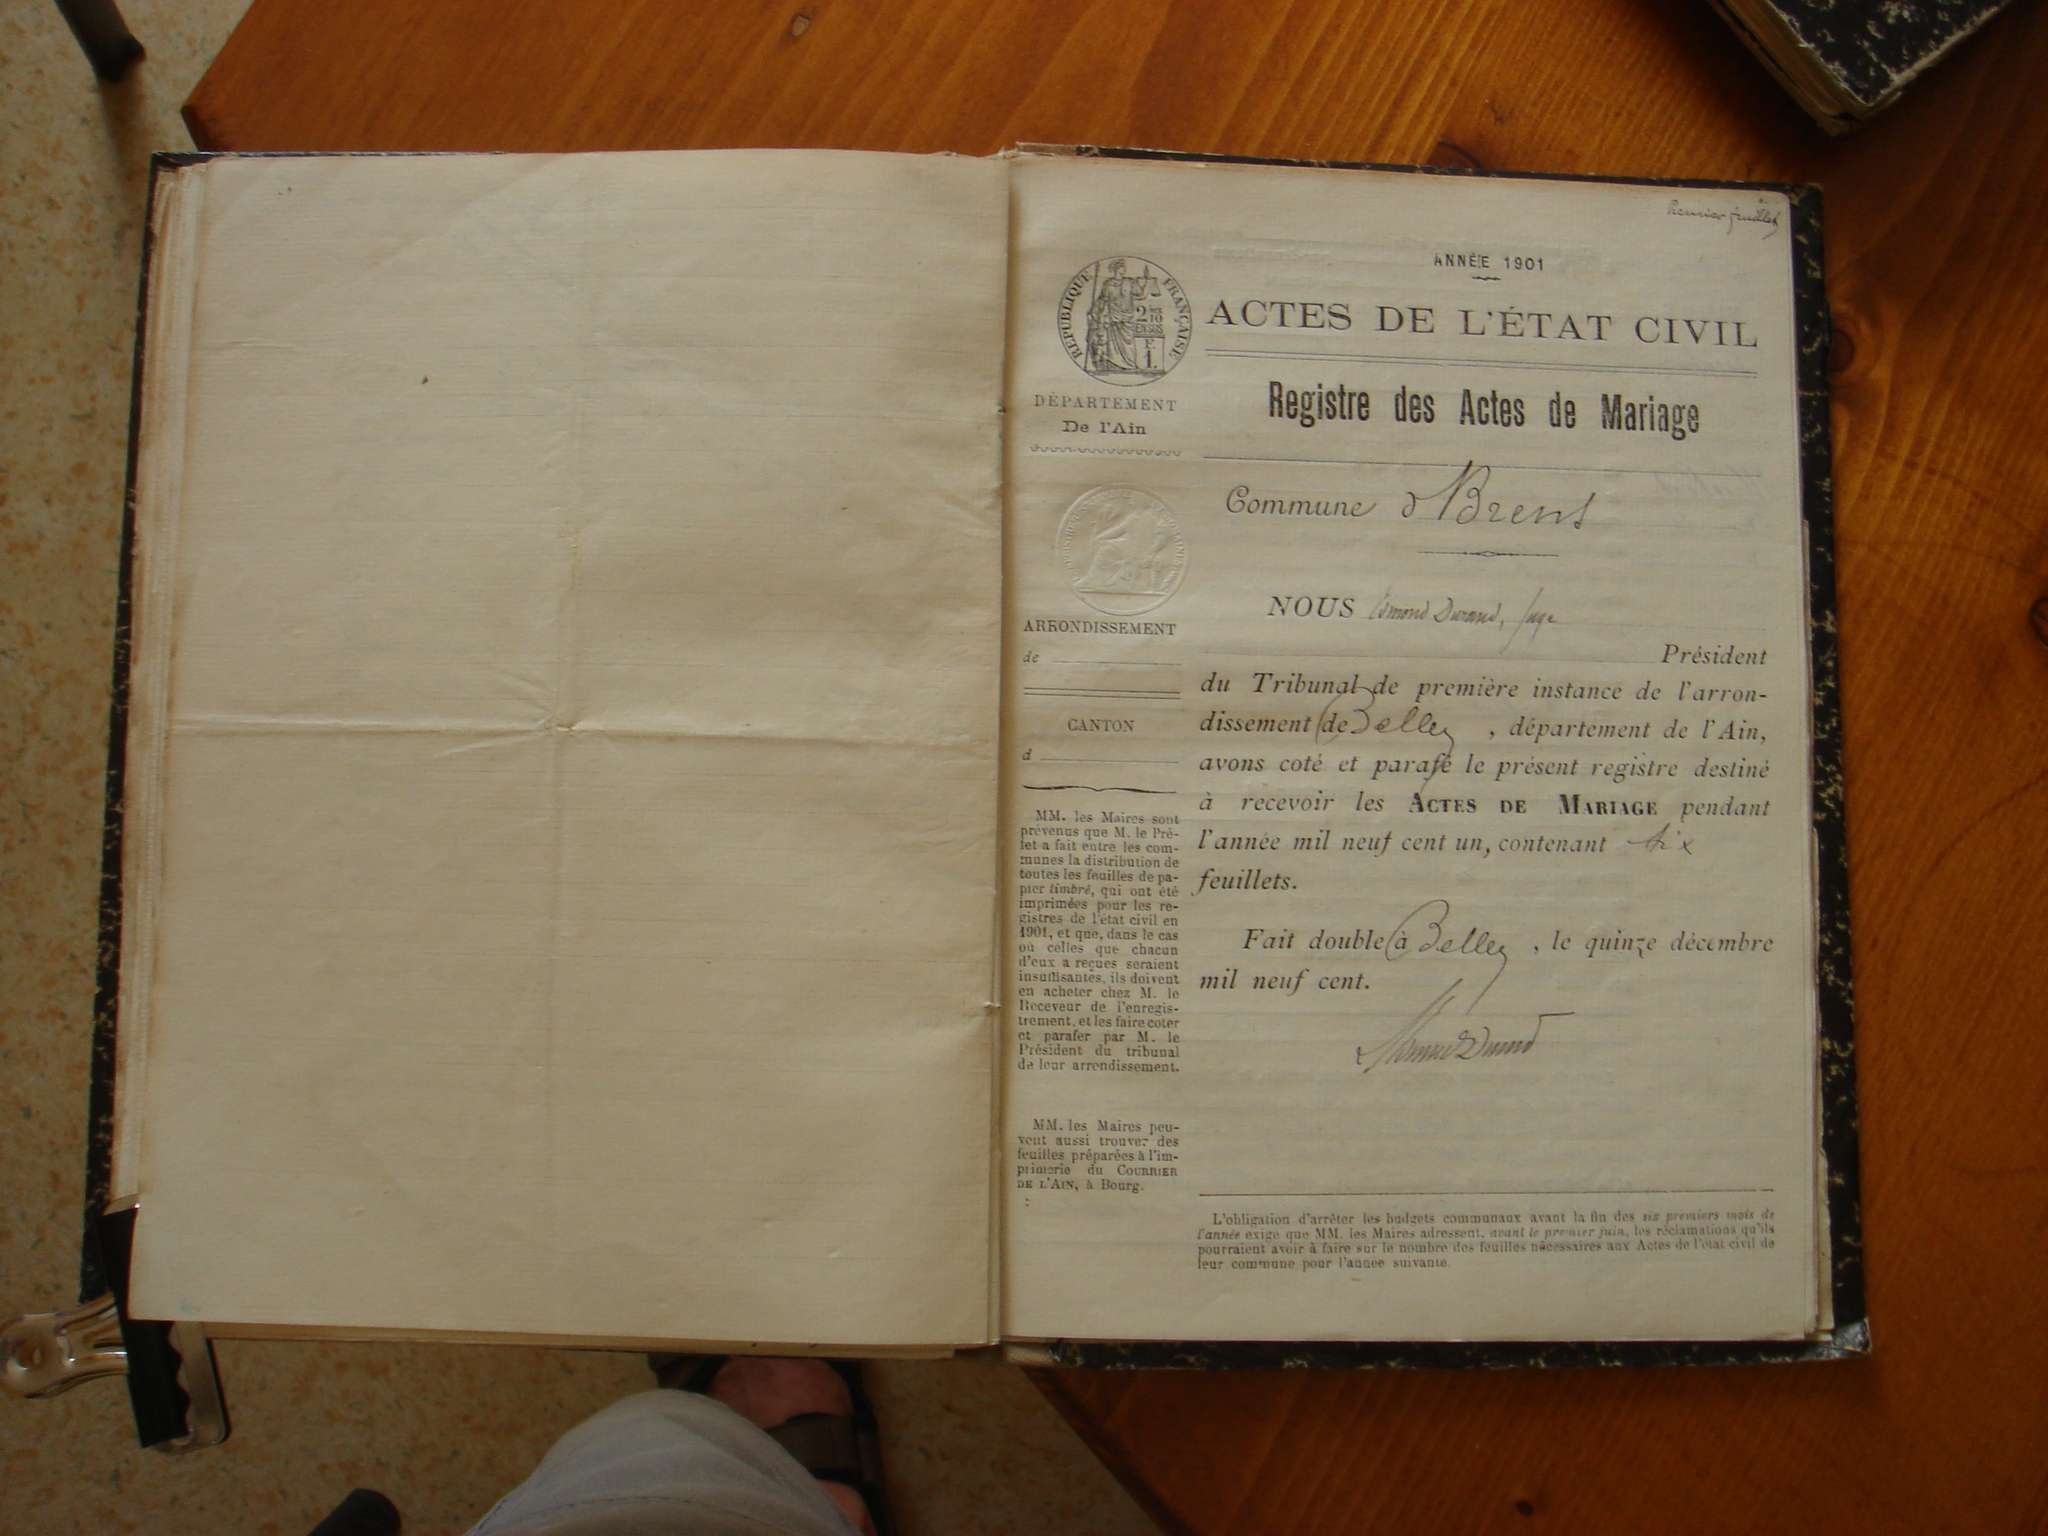 Premier feuillet
ANNÉE 1901
RÉPUBLIQUE FRANÇAISE
2 10
EN SUS
F.
1.
ACTES DE L'ÉTAT CIVIL
DÉPARTEMENT
De l'Ain
Registre des Actes de Mariage
Commune d Brens
ARRONDISSEMENT
de
CANTON
d
MM. les Maires sont
prévenus que M. le Pré-
fet a fait entre les com-
munes la distribution de
toutes les feuilles de pa-
pier timbré, qui ont été
imprimées pour les re-
gistres de l'état civil en
1901, et que, dans le cas
où celles que chacun
d'eux a reçues seraient
insuffisantes, ils doivent
en acheter chez M. le
Receveur de l'enregis-
trement, et les faire coter
et parafer par M. le
Président du tribunal
de leur arrondissement.
MM. les Maires peu-
vent aussi trouver des
feuilles préparées à l'im-
primerie du COURRIER
DE L'AIN, à Bourg.
NOUS Edmond Durand, Juge
Président
du Tribunal de première instance de l'arron-
dissement de Belley, département de l'Ain,
avons coté et parafé le présent registre destiné
à recevoir les ACTES DE MARIAGE pendant
l'année mil neuf cent un, contenant six
feuillets.
Fait double à Belley, le quinze décembre
mil neuf cent.
Durand
L'obligation d'arrêter les budgets communaux avant la fin des six premiers mois de
l'année exige que MM. les Maires adressent, avant le premier juin, les réclamations qu'ils
pourraient avoir à faire sur le nombre des feuilles nécessaires aux Actes de l'état civil de
leur commune pour l'année suivante.